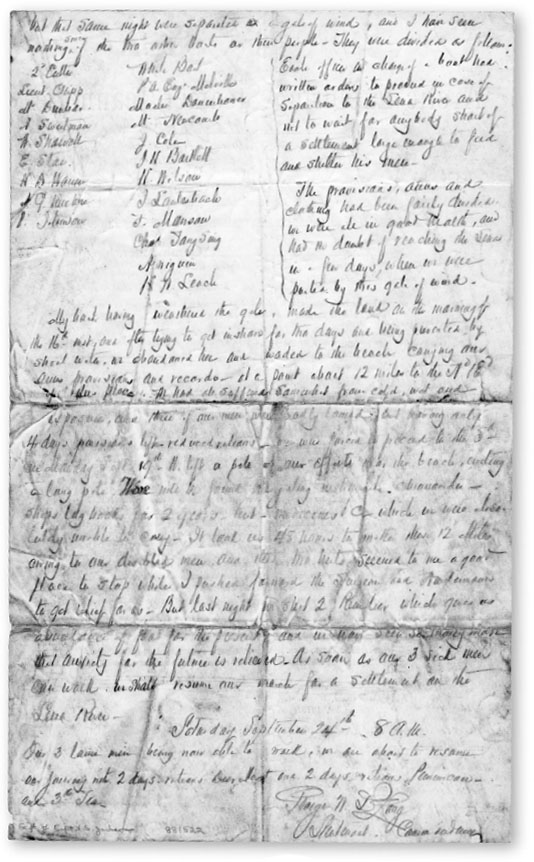 but that same night were separated in a gale of wind, and I have seen
nothing of the two other boats or their people - They were divided as follows:
2d Cutter
Lieut. Chipp
Mr Dunbar
A Sweetman
W. Sharvell
E. Star
H. D. Warren
A. G. Kuehne
P. Johnson
Whale Boat
P A Engr Melville
Master Danenhower
Mr. Newcomb
J. Cole
J. H. Bartlett
H. Wilson
J. Lauterbach
F. Manson
Chas Tong Sing
Aneguin
H. W. Leach
Each officer in charge of a boat had
written orders to proceed in case of
separation to the Lena River and
not to wait for anybody short of
a settlement large enough to feed
and shelter his men -
The provisions, arms and
clothing had been fairly divided.
we were all in good health, and
had no doubt of reaching the Lena
in a few days, when we were
parted by this gale of wind.
My boat having weathered the gale, made the land on the morning of
the 16th inst, and after trying to get inshore for two days and being prevented by
short water, we abandoned her and waded to the beach carrying our
arms provisions and records - at a point about 12 miles to the N & E
of this place - We had all suffered somewhat from cold, wet and
exposure, and three of our men were badly lamed; but having only
4 days provisions left reduced rations - we were forced to proceed to the
Sept. 19th We left a pile of our effects near the beach, erecting
a long pole. There will be found navigating instruments, chronometer -
ships log books for 2 years, tent - medicines &c which we were abso-
lutely unable to carry - It took us 48 hours to make these 12 miles
owing to our disabled men, and these two huts seemed to me a good
place to stop while I pushed forward the Surgeon and Nindemann
to get relief for us - But last night we shot 2 Reindeer which gives us
abundance of food for the present, and we have seen so many more
that anxiety for the future is relieved. As soon as our 3 sick men
can walk we shall resume our march for a settlement on the
Lena River -
Saturday September 24th - 8 A.M.
Our 3 lame men being now able to walk, we are about to resume
our journey with 2 days rations deer meat and 2 days rations Pemmican -
and 3 lb Tea
George W. De Long
Lieutenant. Commanding
881522